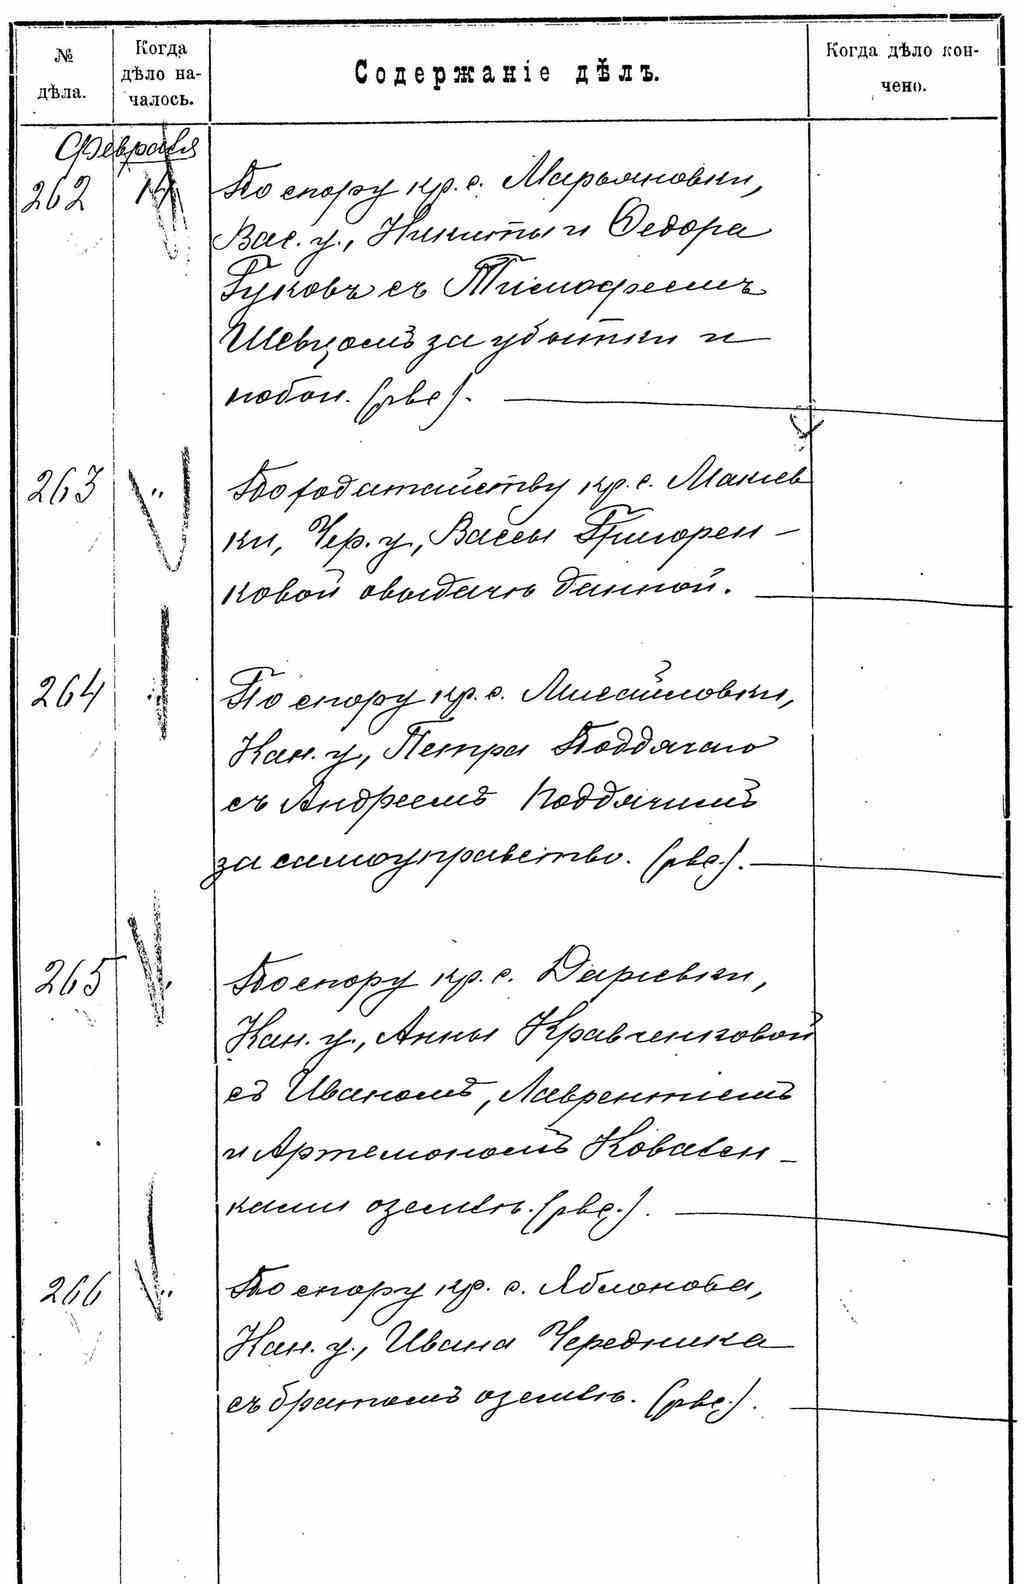 № дѣла.
Когда дѣло на-
чалось.
Содержаніе дѣлъ.
Когда дѣло кон-
чено.
Февраля
262 14 По спору кр. с. Марьяновки,
Вас. у., Никиты и Федора
Гуковъ съ Тимофеемъ
Шевцомъ за убытки и
побои. (рвс).
263 " По ходатайству кр. с. Макіев
ки, Чер. у., Вассы Григорен-
ковой о выдачѣ данной.
264 " По спору кр. с. Михайловки,
Кан. у., Петра Поддячаго
съ Андреемъ Поддячимъ
за самоуправство. (рвс.).
265 " По спору кр. с. Даріевки,
Кан. у., Анны Кравченковой
съ Иваномъ, Лаврентіемъ
и Артемономъ Ковален-
ками о землѣ. (рвс.).
266 " По спору кр. с. Яблонова,
Кан. у., Ивана Чередника
съ братомъ о землѣ. (рвс.).